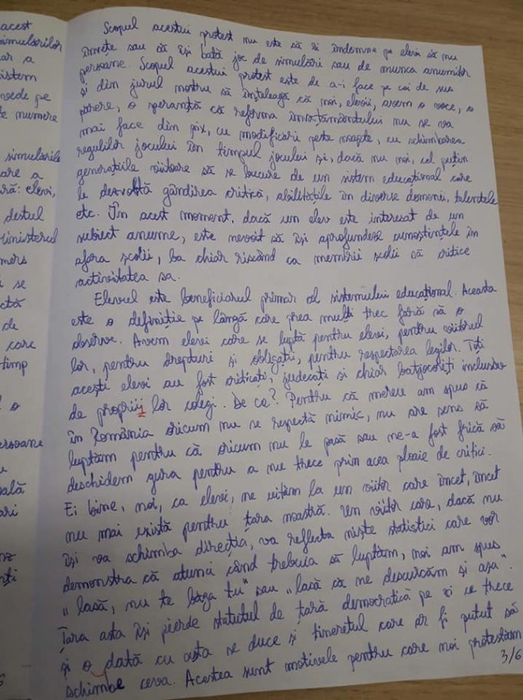 acest
simulărilor
ar a
sistem
sede pe
te numere
simulările
are a
ră: elevi,
destul
ministerul
mers
a se
ctă
de
care
timp
l o
ersoane
u
ală
ari
nti
Scopul acestui protest nu este să îi îndemne pe elevi să nu
învețe sau să își bată joc de simulări sau de munca anumitor
persoane. Scopul acestui protest este de a-i face pe cei de sus
și din jurul nostru să înțeleagă că noi, elevii, avem o voce, o
părere, o speranță că reforma învățământului nu se va
mai face din pix, cu modificări peste noapte, cu schimbarea
regulilor jocului în timpul jocului și, dacă nu noi, cel puțin
generațiile viitoare să se bucure de un sistem educațional care
le dezvoltă gândirea critică, abilitățile în diverse domenii, talentele
etc. În acest moment, dacă un elev este interesat de un
subiect anume, este nevoit să își aprofundeze cunoștințele în
afara școlii, ba chiar riscând ca membrii școlii să critice
activitatea sa.
Elevul este beneficiarul primar al sistemului educațional. Aceasta
este o definiție pe lângă care prea mulți trec fără să o
observe. Avem elevi care se luptă pentru elevi, pentru viitorul
lor, pentru drepturi și obligații, pentru respectarea legilor. Toți
acești elevi au fost criticați, judecați și chiar batjocoriți inclusiv
de propriii lor colegi. De ce? Pentru că mereu am spus că
în România oricum nu se respectă nimic, nu are sens să
luptăm pentru că oricum nu le pasă sau ne-a fost frică să
deschidem gura pentru a nu trece prin acea ploaie de critici.
Ei bine, noi, ca elevi, ne uităm la un viitor care încet, încet
nu mai există pentru țara noastră. Un viitor care, dacă nu
își va schimba direcția, va reflecta niște statistici care vor
demonstra că atunci când trebuia să luptăm, noi am spus
„lasă, nu te băga tu" sau „lasă că ne descurcăm și așa".
Țara asta își pierde statutul de țară democratică pe zi ce trece
și o dată cu asta se duce și tineretul care ar fi putut să
schimbe ceva. Acestea sunt motivele pentru care noi protestăm
3/6